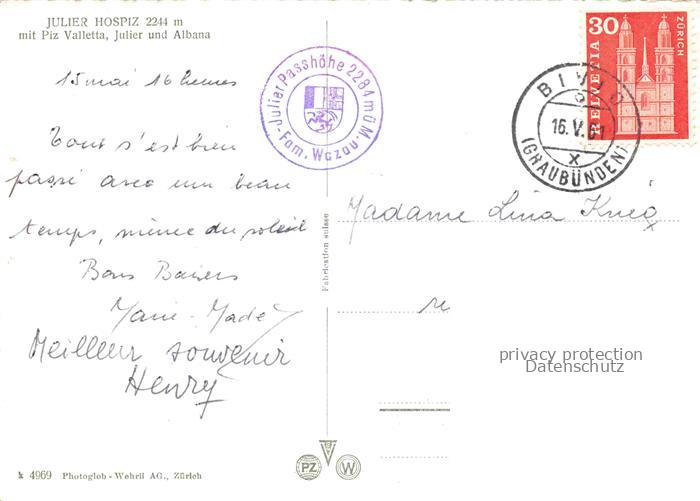 JULIER HOSPIZ 2244 m
mit Piz Valletta, Julier und Albana
15 mai 16 heures
Tout s'est bien
passé avec un beau
temps, même du soleil
Bons Baisers
Marie-Madé
Meilleur souvenir
Henry
k 4969 Photoglob-Wehrli AG., Zürich
Julier Passhöhe 2284 m ü M.
Fam.
Fabrication suisse
PZ W
30
HELVETIA
ZÜRICH
BIVIO
16.V.61
X
(GRAUBÜNDEN)
Madame Lina
privacy protection
Datenschutz